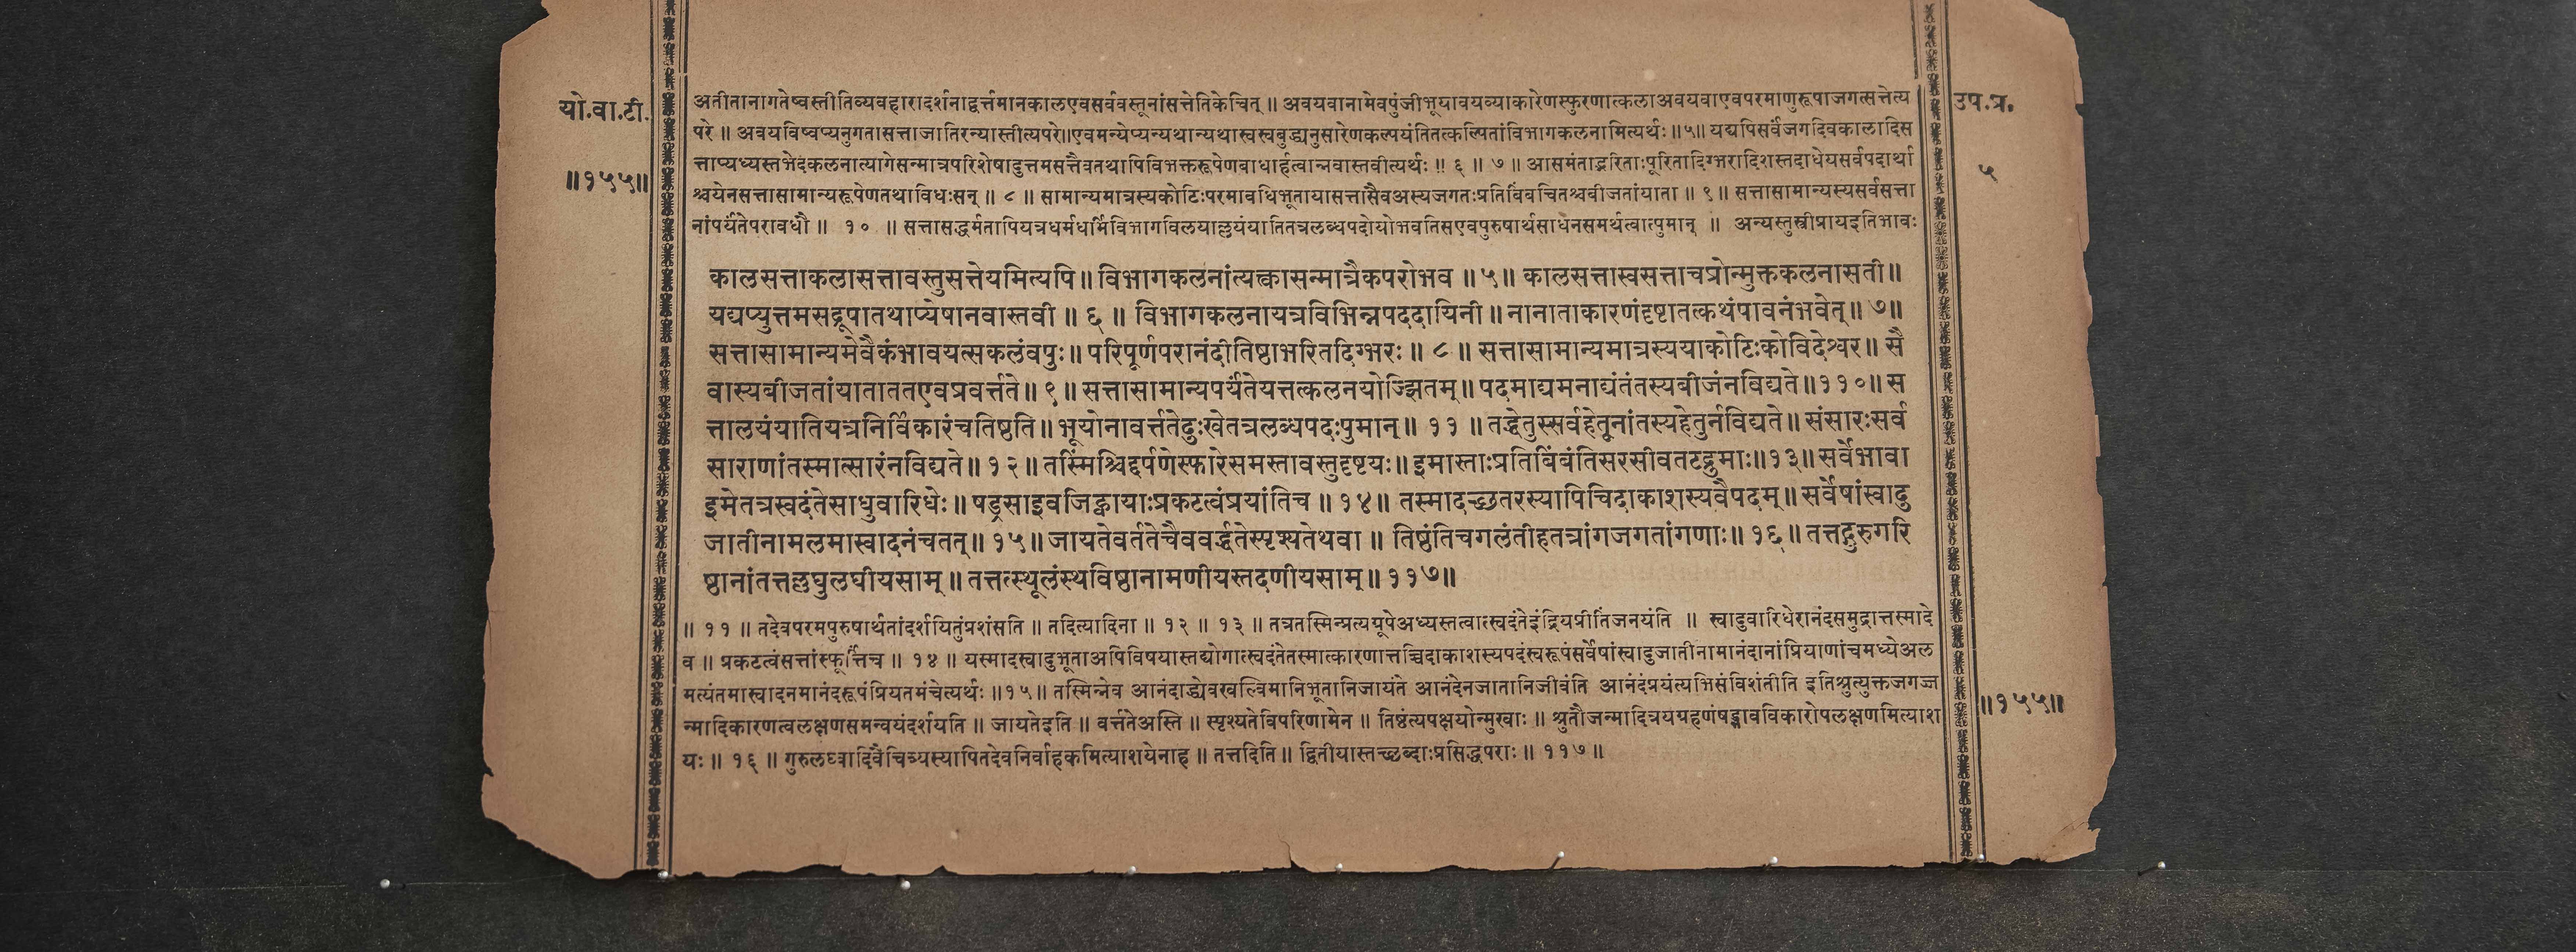 यो.वा.टी.
॥१५५॥
उप.प्र.
५
अतीतानागतेष्वस्तीतिव्यवहारादर्शनाद्वर्त्तमानकालएवसर्ववस्तूनांसत्तेतिकेचित् ॥ अवयवानामेवपुंजीभूयावयव्याकारेणस्फुरणात्कलाअवयवाएवपरमाणुरूपाजगत्सत्तेत्य
परे ॥ अवयविष्वप्यनुगतासत्ताजातिरन्यास्तीत्यपरे॥एवमन्येप्यन्यथान्यथास्वस्वबुद्ध्यनुसारेणकल्पयंतितत्कल्पितांविभागकलनामित्यर्थः ॥५॥ यद्यपिसर्वंजगदिवकालादिस
त्ताप्यध्यस्तभेदकलनात्यागेसन्मात्रपरिशेषादुत्तमसत्तैवतथापिविभक्तरूपेणबाधार्हत्वान्नवास्तवीत्यर्थः !! ६ ॥ ७ ॥ आसमंताद्भरिताःपूरितादिग्भरादिशस्तदाधेयसर्वपदार्था
श्चयेनसत्तासामान्यरूपेणतथाविधःसन् ॥ ८ ॥ सामान्यमात्रस्यकोटिःपरमावधिभूतायासत्तासैवअस्यजगतःप्रतिबिंबचितश्चबीजतांयाता ॥ ९॥ सत्तासामान्यस्यसर्वसत्ता
नांपर्यंतेपरावधौ ॥ १० ॥ सत्तासद्धर्मतापियत्रधर्मधर्मिविभागविलयाल्लयंयातितत्रलब्धपदोयोभवतिसएवपुरुषार्थसाधनसमर्थत्वात्पुमान् ॥ अन्यस्तुस्त्रीप्रायइतिभावः
कालसत्ताकलासत्तावस्तुसत्तेयमित्यपि॥ विभागकलनांत्यक्त्वासन्मात्रैकपरोभव ॥ ५॥ कालसत्तास्वसत्ताचप्रोन्मुक्तकलनासती॥
यद्यप्युत्तमसद्रूपातथाप्येषानवास्तवी ॥ ६ ॥ विभागकलनायत्रविभिन्नपददायिनी॥ नानाताकारणंदृष्टातत्कथंपावनंभवेत्॥ ७॥
सत्तासामान्यमेवैकंभावयत्सकलंवपुः॥ परिपूर्णपरानंदीतिष्ठाभरितदिग्भरः ॥ ८ ॥ सत्तासामान्यमात्रस्ययाकोटिःकोविदेश्वर॥ सै
वास्यबीजतांयाताततएवप्रवर्त्तते॥ ९॥ सत्तासामान्यपर्यंतेयत्तत्कलनयोज्झितम्॥ पदमाद्यमनाद्यंतंतस्यबीजंनविद्यते॥११०॥ स
त्तालयंयातियत्रनिर्विकारंचतिष्ठति॥भूयोनावर्त्ततेदुःखेतत्रलब्धपदःपुमान्॥ ११ ॥ तद्धेतुस्सर्वहेतूनांतस्यहेतुर्नविद्यते॥ संसारःसर्व
साराणांतस्मात्सारंनविद्यते॥ १२॥ तस्मिंश्चिद्दर्पणेस्फारेसमस्तावस्तुदृष्टयः॥ इमास्ताःप्रतिबिंबंतिसरसीवतटद्रुमाः॥१३॥ सर्वेभावा
इमेतत्रस्वदंतेसाधुवारिधेः॥ षड्रसाइवजिह्वायाःप्रकटत्वंप्रयांतिच ॥ १४॥ तस्मादच्छतरस्यापिचिदाकाशस्यवैपदम्॥ सर्वेषांस्वादु
जातीनामलमास्वादनंचतत्॥ १५॥ जायतेवर्ततेचैववर्द्धतेस्पृश्यतेथवा ॥ तिष्ठंतिचगलंतीहतत्रांगजगतांगणाः॥ १६॥ तत्तद्गुरुगरि
ष्ठानांतत्तल्लघुलघीयसाम्॥ तत्तत्स्थूलंस्थविष्ठानामणीयस्तदणीयसाम्॥ ११७॥
॥ ११ ॥ तदेवपरमपुरुषार्थतांदर्शयितुंप्रशंसति ॥ तदित्यादिना ॥ १२ ॥ १३ ॥ तत्रतस्मिन्प्रत्ययूपेअध्यस्तत्वात्स्वदंतेइंद्रियप्रीतिंजनयंति ॥ स्वादुवारिधेरानंदसमुद्रात्तस्मादे
व ॥ प्रकटत्वंसत्तांस्फूर्त्तिंच ॥ १४ ॥ यस्मादस्वादुभूताअपिविषयास्तद्योगात्स्वदंतेतस्मात्कारणात्तच्चिदाकाशस्यपदंस्वरूपंसर्वेषांस्वादुजातीनामानंदानांप्रियाणांचमध्येअल
मत्यंतमास्वादनमानंदरूपंप्रियतमंचेत्यर्थः ॥१५॥ तस्मिन्नेव आनंदाद्ध्येवखल्विमानिभूतानिजायंते आनंदेनजातानिजीवंति आनंदंप्रयंत्यभिसंविशंतीति इतिश्रुत्युक्तजगज्ज
न्मादिकारणत्वलक्षणसमन्वयंदर्शयति ॥ जायतेइति ॥ वर्त्ततेअस्ति ॥ स्पृश्यतेविपरिणामेन ॥ तिष्ठंत्यपक्षयोन्मुखाः ॥ श्रुतौजन्मादित्रयग्रहणंषड्भावविकारोपलक्षणमित्याश
यः ॥ १६ ॥ गुरुलघ्वादिवैचित्र्यस्यापितदेवनिर्वाहकमित्याशयेनाह ॥ तत्तदिति ॥ द्वितीयास्तच्छब्दाःप्रसिद्धपराः ॥ ११७ ॥
॥१५५॥